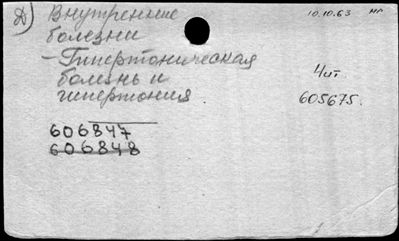 Д) Внутренние 10.10.63 мл
болезни
– Гипертоническая
болезнь и Чит.
гипертония 605675.
606847
606848